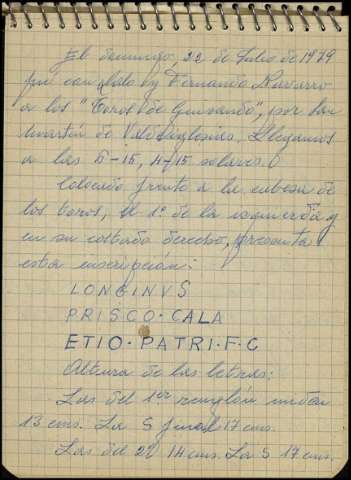 El domingo, 22 de Julio de 1979
fui con Aldo y Fernando Navarro
a los "Toros de Guisando", por San
Martín de Valdeiglesias. Llegamos
a las 6-15, 4-15 solares.
Colocado frente a la cabeza de
los toros, el 1º de la izquierda y
en su costado derecho, presenta
esta inscripción:
LONGINVS
PRISCO·CALA
ETIO·PATRI·F·C
Altura de las letras:
Las del 1er renglón miden
13 cms. La S final 17 cms.
Las del 2º 14 cms. La S 17 cms.